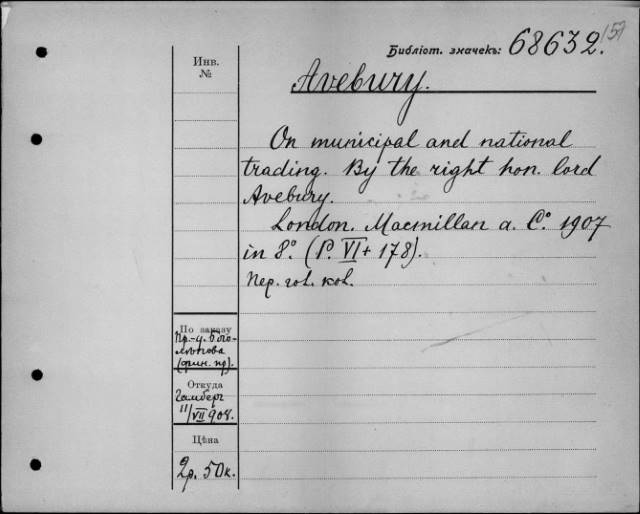 Библіот. значекъ: 68632. 159
Инв.
№
Avebury.
On municipal and national
trading. By the right hon. lord
Avebury.
London. Macmillan a. Cº 1907
in 8º. (P. VI + 178).
Пер. гов. ков.
По заказу
Пр.-у. Бого-
лѣпова
(фин. пр).
Откуда
Гамберг
11/VII 908.
Цѣна
2р. 50к.